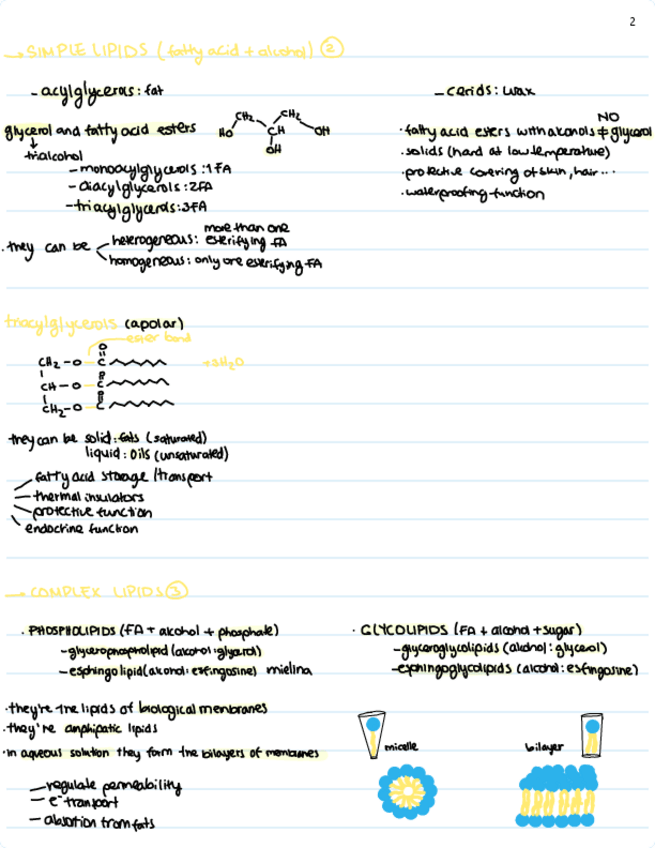 2
→ SIMPLE LIPIDS (fatty acid + alcohol) ②
- acylglycerols: fat
glycerol and fatty acid esters
trialcohol
- monoacylglycerols: 1FA
- diacylglycerols: 2FA
- triacylglycerols: 3FA
HO CH2 CH CH2 OH
OH
more than one
· they can be heterogeneous: esterifying FA
homogeneous: only one esterifying FA
- cerids: wax
NO
· fatty acid esters with alcohols ≠ glycerol
· solids (hard at low temperature)
· protective covering of skin, hair...
· waterproofing function
triacylglycerols (apolar)
ester bond
O
CH2 - O - C
+3H2O
O
CH - O - C
O
CH2 - O - C
they can be solid: fats (saturated)
liquid: oils (unsaturated)
fatty acid storage / transport
thermal insulators
protective function
endocrine function
→ COMPLEX LIPIDS ③
· PHOSPHOLIPIDS (FA + alcohol + phosphate)
- glycerophospholipid (alcohol: glycerol)
- esphingolipid (alcohol: esfingosine) mielina
· GLYCOLIPIDS (FA + alcohol + sugar)
- glyceroglycolipids (alcohol: glycerol)
- esphingoglycolipids (alcohol: esfingosine)
· they're the lipids of biological membranes
· they're amphipatic lipids
· in aqueous solution they form the bilayers of membranes
- regulate permeability
- e- transport
- absortion from fats
micelle
bilayer